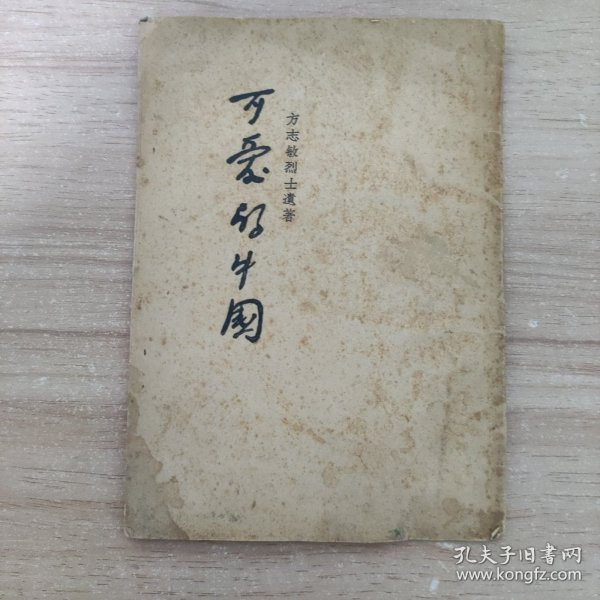 方志敏烈士遺著
可愛的中國
孔夫子旧書网
www.kongfz.com